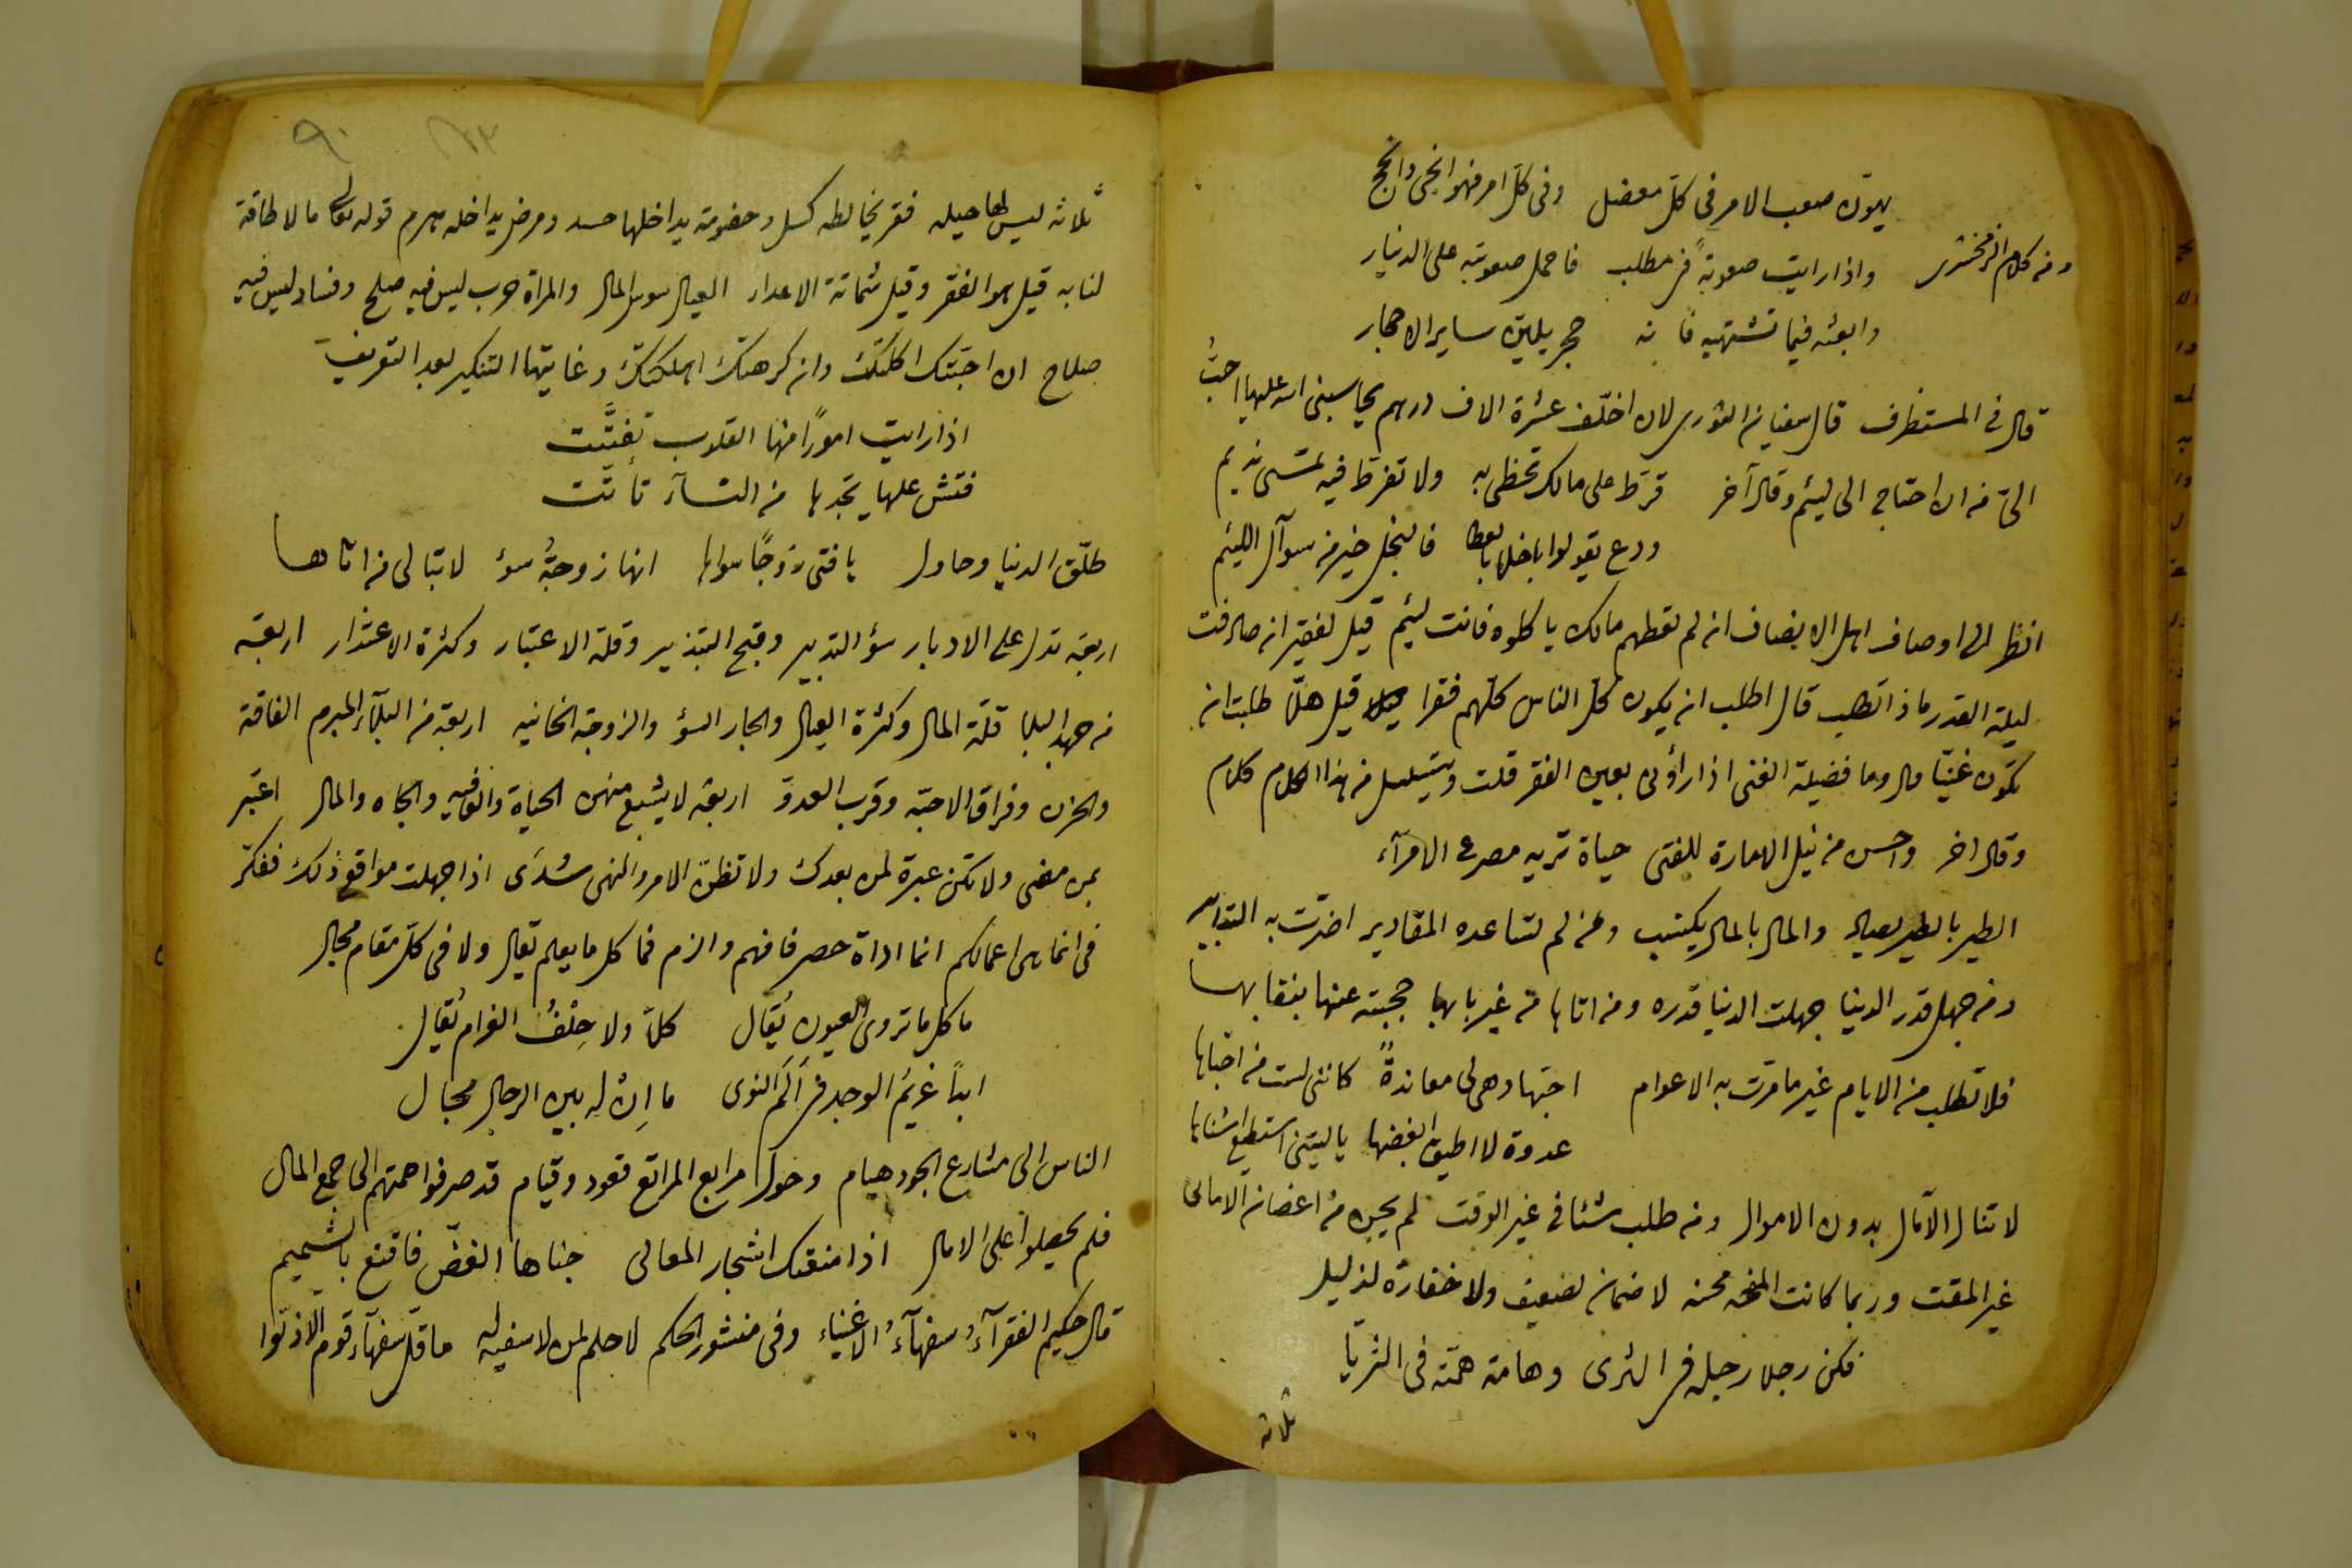 يهون صعب الامر فى كل معضل وفى كل امر فهو انجى وانجح
ومن كلام الزمخشرى واذا رايت صعوبةً فى مطلب فاحمل صعوبته على الدينار
وابعثه فيما تشتهيه فانه حجر يلين ساير الاحجار
قال فى المستظرف قال سفيان الثورى لان اخلّف عشرة الاف درهم يحاسبنى الله عليها احبُّ
الىّ من ان احتاج الى ليئم وقال آخر قرّط على مالك تحظى به ولا تفرّط فيه تمسى نديم
ودع يقولوا باخلا بالعطا فالبخل خير من سوآل اللئيم
انظر الى اوصاف اهل الانصاف ان لم تعطهم مالك ياكلوه فانت ليئم قيل لفقير ان صادفت
ليلة القدر ماذا تطلب قال اطلب ان يكون كل الناس كلهم فقرا قيل هلّا طلبت ان
تكون غنيّا قال وما فضيلة الغنى اذا راؤنى بعين الفقر قلت ويتسلسل من هذا الكلام كلام
وقال اخر واحسن من نيل الامارة للفتى حياة تريه مصرع الامرآء
الطير بالطير يصاد والمال بالمال يكتسب ومن لم تساعده المقادير اضرّت به التدابير
ومن جهل قدر الدنيا جهلت الدنيا قدره ومن اتاها من غير بابها حجبته عنها بنقابها
فلا تطلب من الايام غير ما مرّت به الاعوام احبّها وهى لى معاندةً كاننى لست من احبّاها
عدوة لا اطيق ابغضها ياليتنى استطيع اشناها
لا تنال الآمال بدون الاموال ومن طلب شئا فى غير الوقت لم يجن من اغصان الامانى
غير المقت وربما كانت المنحه محنه لا ضمان لضعيف ولا خفارة لذليل
فكن رجلا رجله فى الثرى وهامة همّته فى الثريا
ثلاثه
٩٠
ثلاثه ليس لها حيله فقر يخالطه كسل وخصومة يداخلها حسد ومرض يداخله هرم قوله تعالى مالا طاقة
لنا به قيل هو الفقر وقيل شماتة الاعداء العيال سوس المال والمراة حرب ليس فيه صلح وفساد ليس فيه
صلاح ان احبّتك اكلتك وان كرهتك اهلكتك وغايتها التنكير بعد التعريف
اذا رايت امورًا منها القلوب تفتّت
فتش عليها تجدها من النسآء تأتّت
طلّق الدنيا وحاول يا فتى زوجًا سواها انها زوجةُ سؤ لا تبالى من اتاها
اربعة تدل على الادبار سؤ التدبير وقبح التبذير وقلة الاعتبار وكثرة الاعتذار اربعة
من جهد البلا قلّة المال وكثرة العيال والجار السؤ والزوجة الخانيه اربعة من البلآء المبرم الفاقة
والحزن وفراق الاحبّه وقرب العدوّ اربعة لا يشبع منهن الحياة والعافيه والجاه والمال اعتبر
بمن مضى ولا تكن عبرة لمن بعدك ولا تظنّ الامر والنهى سُدًى اذا جهلت مواقع ذلك ففكر
فى انما هى اعمالكم انما اداة حصر فافهم والزم فما كل ما يعلم يقال ولا فى كلّ مقام مجال
ما كل ما تروى العيون يُقال كلاّ ولا حِلْفُ الغرام يُقال
ابدًا غريمُ الوجد فى اَلَم النوى ما اِنْ له بين الرجال مجال
الناس الى مشارع الجود هيام وحول مرابع المراتع قعود وقيام قد صرفوا همتهم الى جمع المال
فلم يحصلوا على الامال اذا منعتك اشجار المعالى جناها الغضّ فاقنع بالشميم
قال حكيم الفقرآءُ سفهآءُ الاغنياء وفى منشور الحكم لا حلم لمن لا سفيه له ما قلّ سفهآء قوم الا ذلّوا